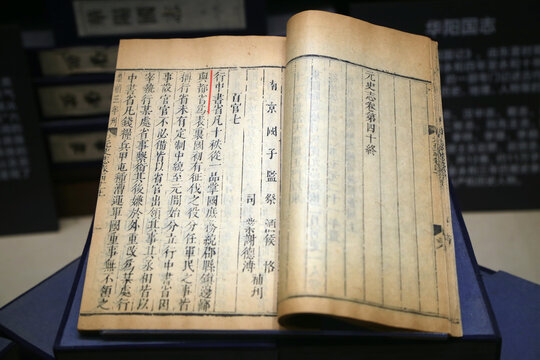 华阳国志
元史志卷第四十終
南京國子監祭酒侯恪
司業謝德溥 補刊
百官七
行中書省凡十秩從一品掌國庶務統郡縣鎮邊鄙
與都省爲表裏國初有征伐之役分任軍民之事皆
稱行省未有定制中統至元間始分立行中書省因
事設官官不必備皆以省官出領其事其丞相皆以
宰執行某處省事繫銜其後嫌於外重改爲某處行
中書省凡錢糧兵甲屯種漕運軍國重事無不領之